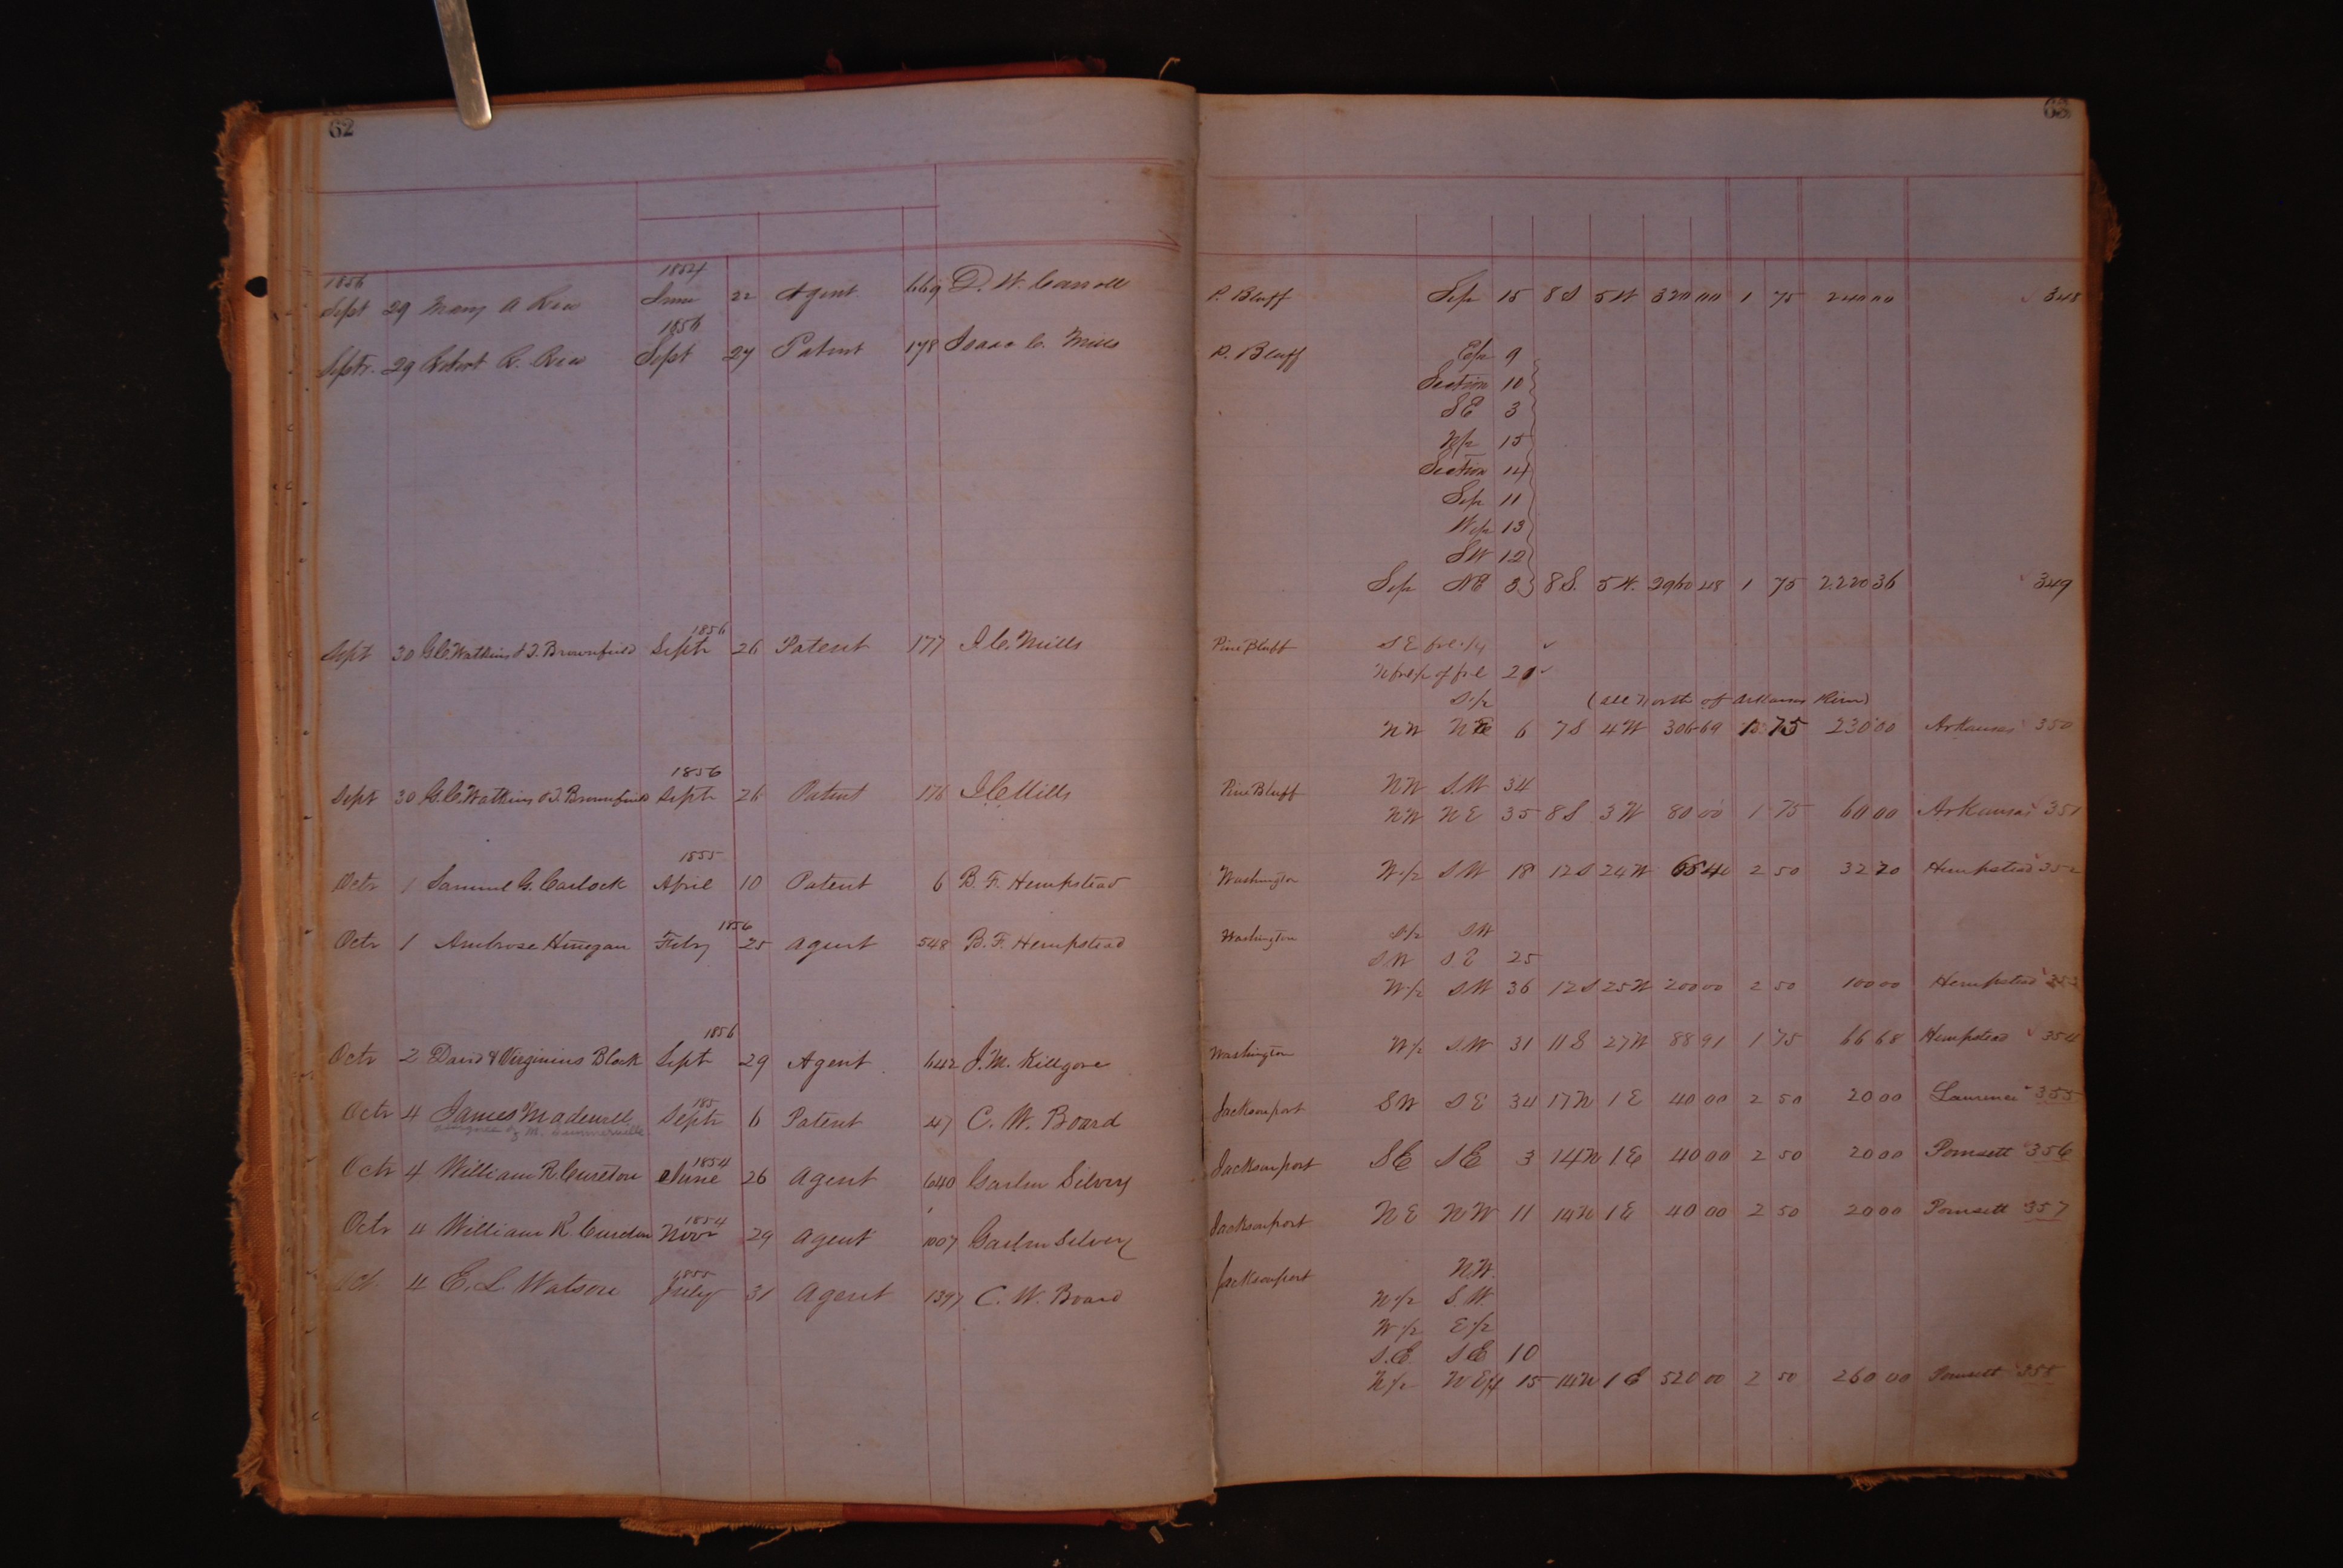 62
63
1856 1854
Sept 29 Mary A Rice June 22 Agent 669 D. W. Carroll P. Bluff S 1/2 15 8 S 5 W 320 00 1 75 240 00 348
1856
Septr. 29 Robert R. Rice Sept 27 Patent 178 Isaac C. Mills P. Bluff E 1/2 9
Section 10
SE 3
N 1/2 15
Section 14
S 1/2 11
W 1/2 13
SW 12
S 1/2 NE 3 8 S. 5 W. 2960 48 1 75 2220 36 349
1856
Sept 30 G.C. Watkins & T. Brownfield Septr 26 Patent 177 I. C. Mills Pine Bluff S E frl 1/4
N frl 1/2 of frl 21
S 1/2 (all North of Arkansas River)
NW NE 6 7 S 4 W 306 69 75 230 00 Arkansas 350
1856
Sept 30 G.C. Watkins & T. Brownfield Septr 26 Patent 176 I. C. Mills Pine Bluff NW S.W 34
NW N E 35 8 S 3 W 80 00 1 75 60 00 Arkansas 351
1855
Octr 1 Samuel G. Carlock April 10 Patent 6 B. F. Hempstead Washington W 1/2 SW 18 12 S 24 W 40 2 50 32 70 Hempstead 352
1856
Octr 1 Ambrose Finegan Feby 25 Agent 548 B. F. Hempstead Washington S 1/2 SW
SW S E 25
W 1/2 SW 36 12 S 25 W 200 00 2 50 100 00 Hempstead 353
1856
Octr 2 David & Virginius Block Sept 29 Agent 642 J. M. Killgore Washington W 1/2 S.W 31 11 S 27 W 88 91 1 75 66 68 Hempstead 354
185
Octr 4 James Madewell Septr 6 Patent 47 C. W. Board Jacksonport SW S E 34 17 N 1 E 40 00 2 50 20 00 Lawrence 355
assignee of M. Summerville
1854
Octr 4 William R. Cureton June 26 Agent 640 Gaston Silvey Jacksonport SE SE 3 14 N 1 E 40 00 2 50 20 00 Poinsett 356
1854
Octr 4 William R. Cureton Novr 29 Agent 1007 Gaston Silvey Jacksonport N E N W 11 14 N 1 E 40 00 2 50 20 00 Poinsett 357
1855
Oct. 4 E. L. Watson July 31 Agent 1397 C. W. Board Jacksonport N.W.
N 1/2 S.W.
W 1/2 E 1/2
S.E. S E 10
N 1/2 N E/4 15 14 N 1 E 520 00 2 50 260 00 Poinsett 358